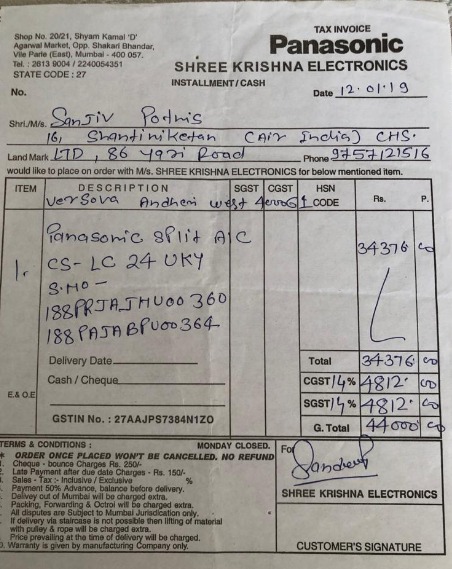 Shop No. 20/21, Shyam Kamal 'D'
Agarwal Market, Opp. Shakari Bhandar,
Vile Parle (East), Mumbai - 400 057.
Tel. : 2613 9004 / 2240054351
STATE CODE : 27
TAX INVOICE
Panasonic
SHREE KRISHNA ELECTRONICS
INSTALLMENT / CASH
No.
Date 12.01.19
Shri./M/s. Sanjiv Potnis
16, Shantiniketan (Air India) CHS.
Land Mark LTD, 86 Yari Road Phone 9757121516
would like to place on order with M/s. SHREE KRISHNA ELECTRONICS for below mentioned item.
ITEM DESCRIPTION SGST CGST HSN CODE Rs. P.
Versova Andheri west 400061
Panasonic Split A/C 34376 00
1. CS-LC 24 UKY
S.no-
188PRJAJHU00360
188PAJABPU00364
Delivery Date
Total 34376 00
Cash / Cheque
CGST 14% 4812. 00
E.& O.E
SGST 14% 4812. 00
GSTIN No. : 27AAJPS7384N1ZO
G. Total 44000 00
TERMS & CONDITIONS : MONDAY CLOSED.
* ORDER ONCE PLACED WON'T BE CANCELLED. NO REFUND
Cheque - bounce Charges Rs. 250/-
2. Late Payment after due date Charges - Rs. 150/-
Sales - Tax :- Inclusive / Exclusive %
Payment 50% Advance, balance before delivery.
Delivey out of Mumbai will be charged extra.
Packing, Forwarding & Octroi will be charged extra.
All disputes are Subject to Mumbai Jurisdication only.
If delivey via staircase is not possible then lifting of material
with pulley & rope will be charged extra.
Price prevailing at the time of delivery will be charged.
Warranty is given by manufacturing Company only.
For
SHREE KRISHNA ELECTRONICS
CUSTOMER'S SIGNATURE